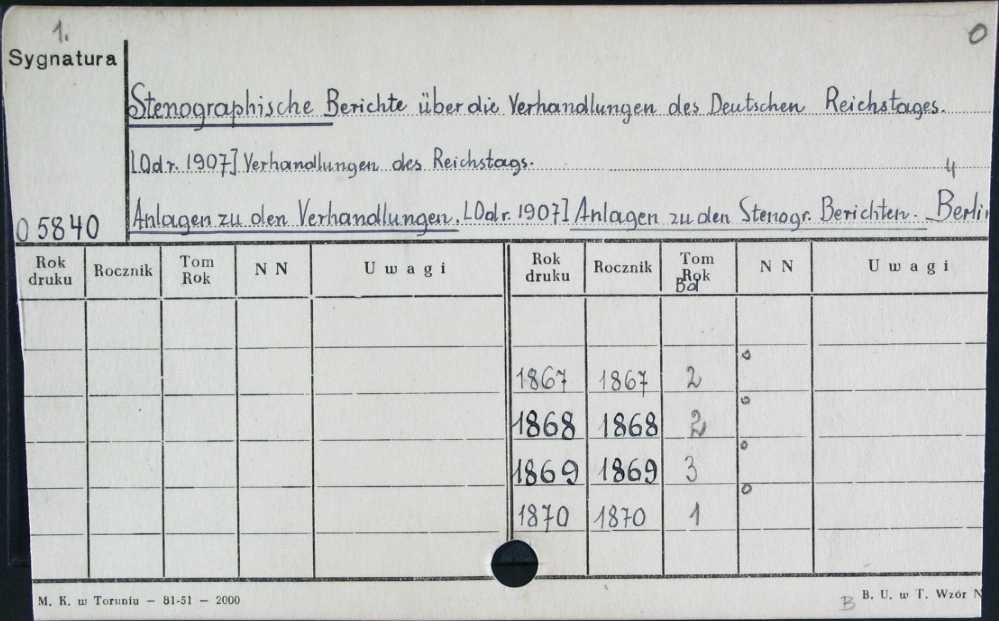 1.
O
Sygnatura
Stenographische Berichte über die Verhandlungen des Deutschen Reichstages.
[Odr. 1907] Verhandlungen des Reichstags.
4
05840
Anlagen zu den Verhandlungen. [Odr. 1907] Anlagen zu den Stenogr. Berichten. Berlin
Rok druku Rocznik Tom Rok N N Uwagi Rok druku Rocznik Tom Rok Bd N N Uwagi
1867 1867 2 o
1868 1868 2 o
1869 1869 3 o
1870 1870 1 o
M. K. w Toruniu – 81-51 – 2000
B
B. U. w T. Wzór N